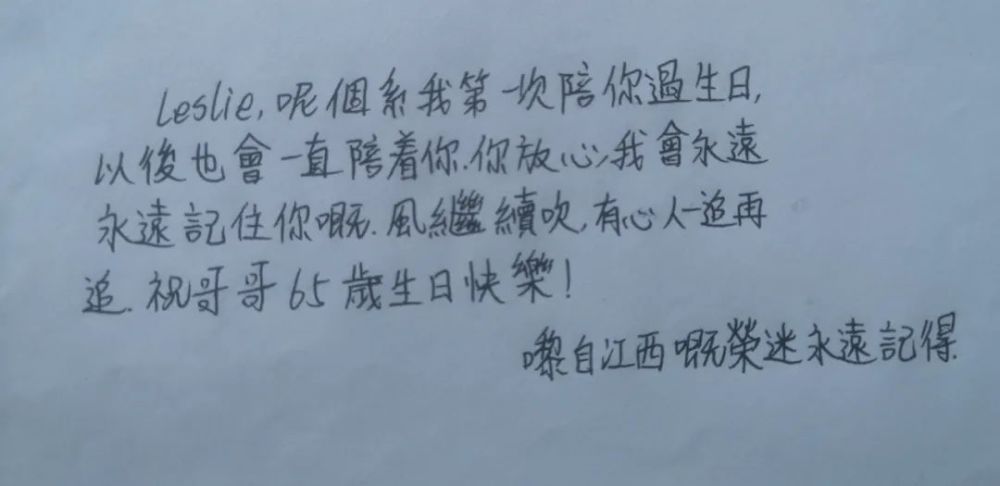 Leslie,呢個系我第一次陪你過生日,
以後也會一直陪着你.你放心,我會永遠
永遠記住你嘅.風繼續吹,有心人一追再
追.祝哥哥65歲生日快樂!
嚟自江西嘅榮迷永遠記得.